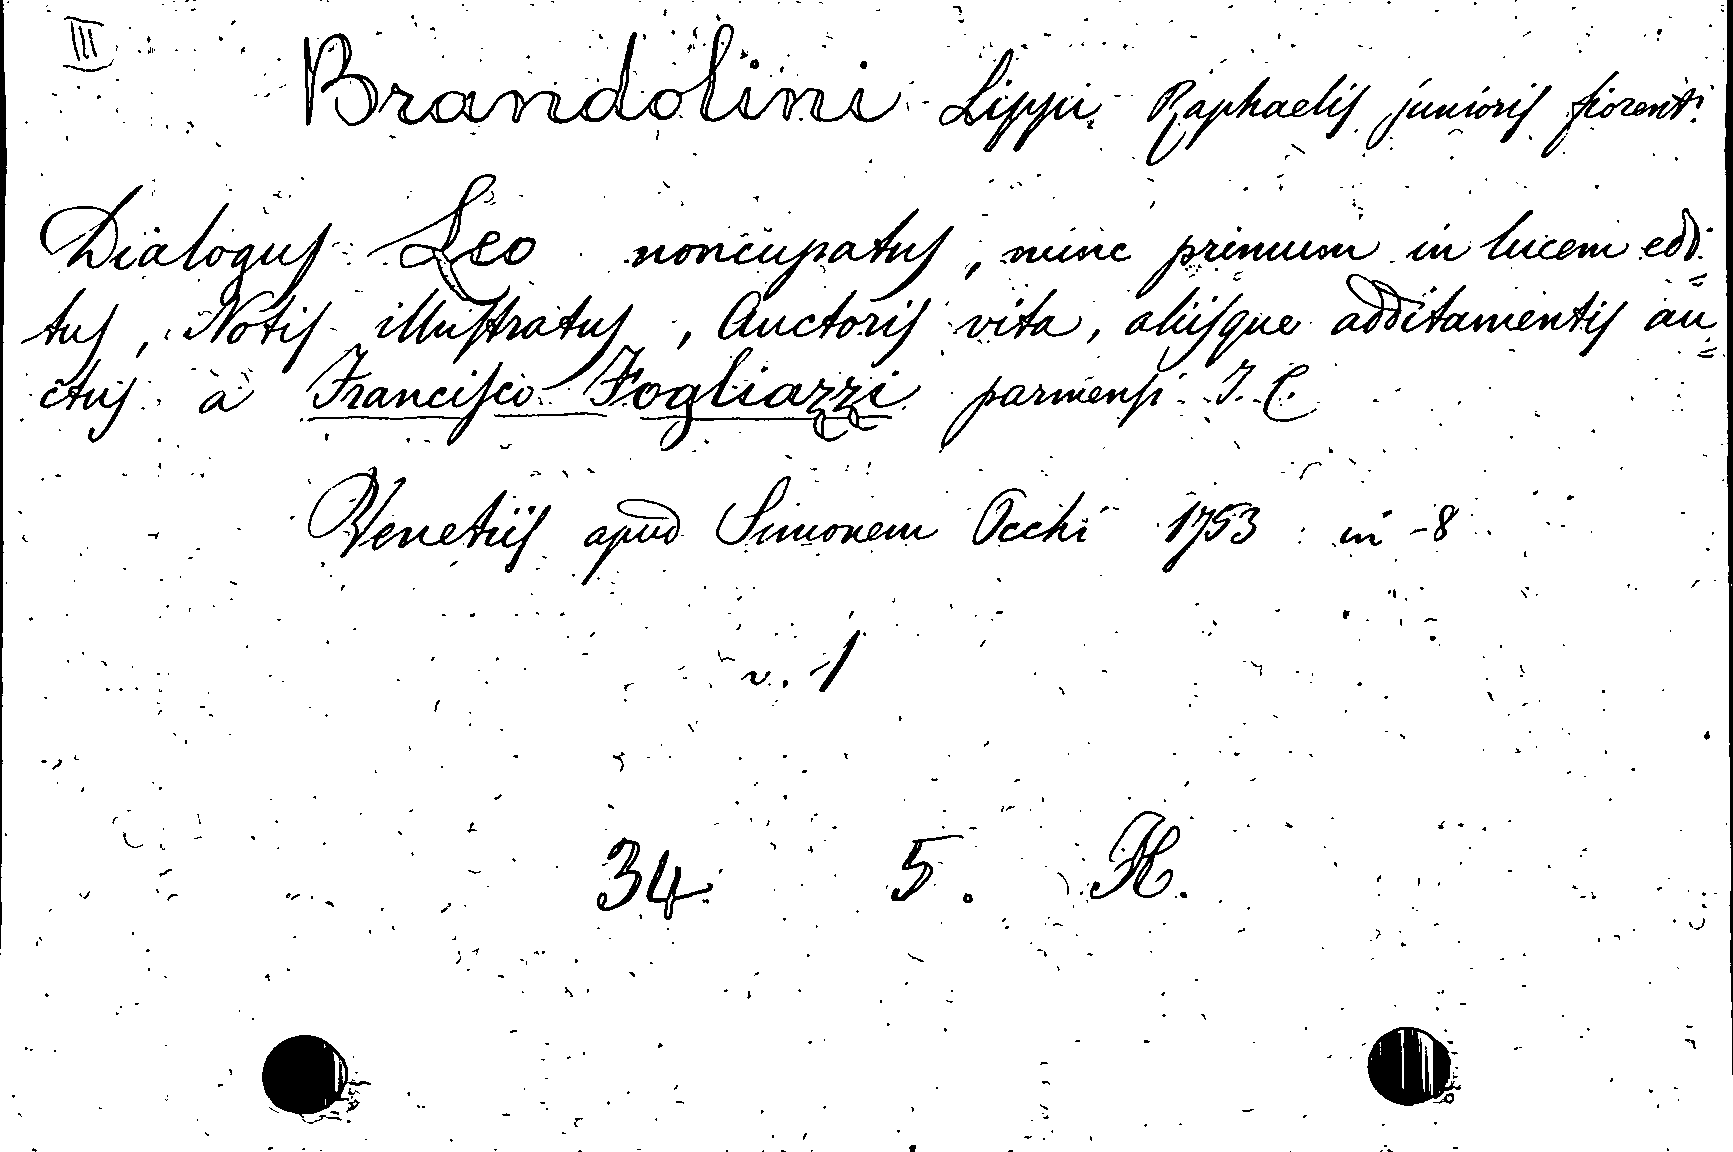 III
Brandolini Lippi Raphaelis junioris fiorenti
Dialogus Leo noncupatus, nunc primum in lucem edi=
tus, Notis illustratus, Auctoris vita, aliisque additamentis au=
ctus a Francisco Fogliazzi parmensi J. C.
Venetiis apud Simonem Occhi 1753 in-8
v. 1
34. 5. H.